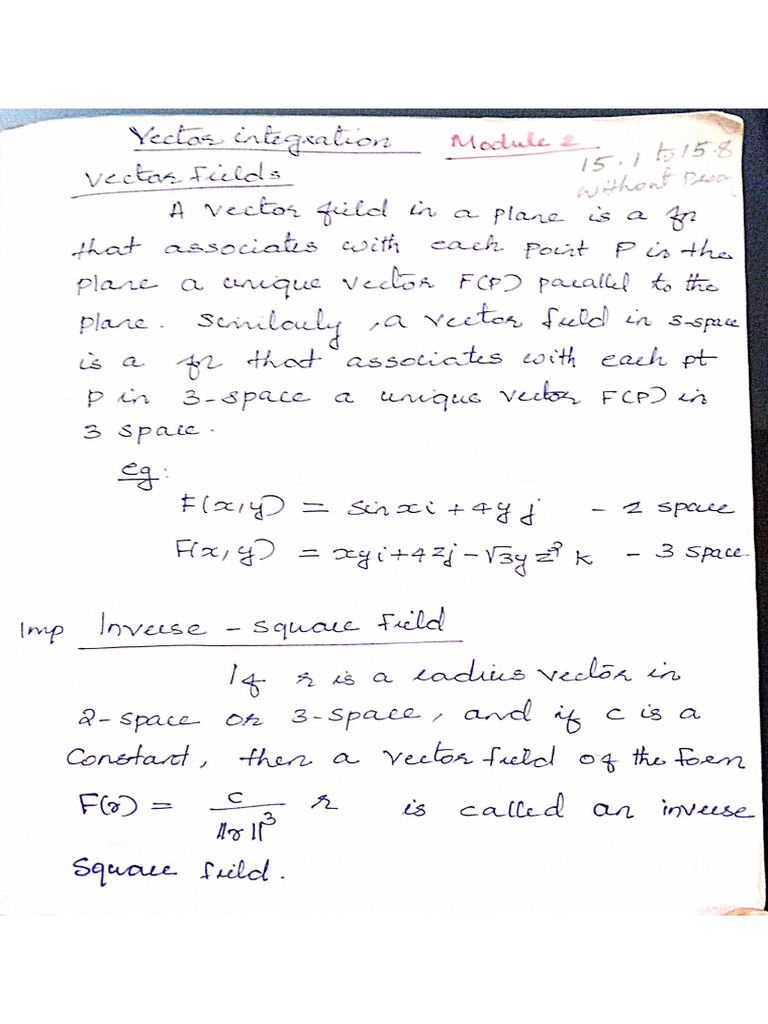 Vector integration Module 2
15.1 to 15.8
without
Vector fields
A vector field in a plane is a fn
that associates with each point P in the
plane a unique vector F(P) parallel to the
plane. Similarly, a vector field in 3-space
is a fn that associates with each pt
P in 3-space a unique vector F(P) in
3 space.
eg:
F(x,y) = sinxi + 4yj - 2 space
F(x,y) = xyi+4zj-√3yz³ k - 3 space
Imp Inverse - square field
If r is a radius vector in
2-space or 3-space, and if c is a
Constant, then a vector field of the form
F(r) = c/||r||³ r is called an inverse
Square field.